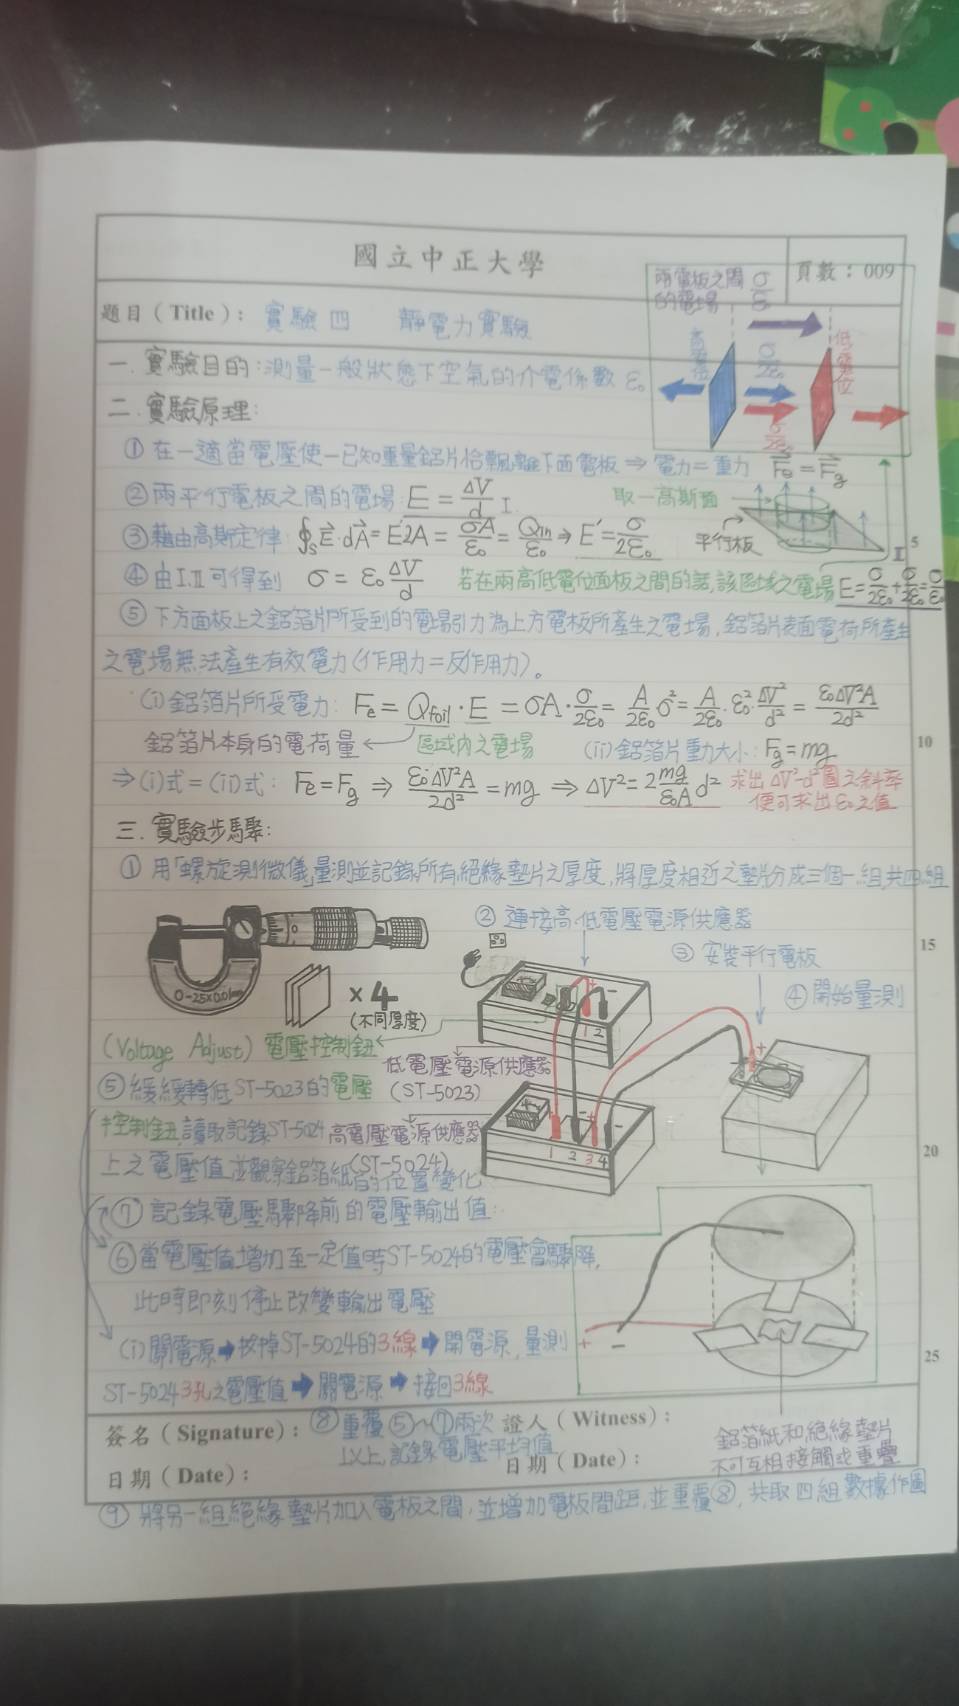 國立中正大學
頁數：009
題目（Title）： 實驗四 靜電力實驗
兩電板之間的電場 σ/ε₀
高電位
低電位
σ/2ε₀
σ/2ε₀
一. 實驗目的：測量一般狀態下空氣的介電係數 ε₀
二. 實驗原理：
① 在一適當電壓使一已知重量鋁片恰飄離下面電板 ⇒ 電力＝重力 F⃗e = F⃗g
② 兩平行電板之間的電場 E = ΔV/d I.
取一高斯面
平行板
③ 藉由高斯定律 ∮s E⃗·dA⃗ = E'2A = σA/ε₀ = Qin/ε₀ → E' = σ/2ε₀
II
④ 由I.II可得到 σ = ε₀ ΔV/d
若在兩高低電位面板之間的話,該區域之電場 E = σ/2ε₀ + σ/2ε₀ = σ/ε₀
⑤ 下方面板上之鋁箔片所受到的電場引力為上方電板所產生之電場, 鋁箔片表面電荷所產生
之電場無法產生有效電力(作用力＝反作用力)。
(i) 鋁箔片所受電力: Fe = Qfoil · E = σA · σ/2ε₀ = A/2ε₀ σ² = A/2ε₀ · ε₀² · ΔV²/d² = ε₀ΔV²A/2d²
鋁箔片本身的電荷量 ← 區域內之電場 (ii) 鋁箔片重力大小: Fg = mg
⇒ (i)式＝(ii)式: Fe = Fg ⇒ ε₀ΔV²A/2d² = mg ⇒ ΔV² = 2 mg/ε₀A d² 求出ΔV²-d²圖之斜率
便可求出ε₀之值
三. 實驗步驟:
① 用「螺旋測微儀」量測並記錄所有絕緣墊片之厚度, 將厚度相近之墊片分成三個一組,共四組
② 連接高.低電壓電源供應器
③ 安裝平行電板
④ 開始量測
0-25x0.01mm
x4
(不同厚度)
(Voltage Adjust) 電壓控制鈕
低電壓電源供應器
(ST-5023)
+ -
1 2
⑤ 緩緩轉低ST-5023的電壓
控制鈕,讀取記錄ST-5024
高電壓電源供應器
(ST-5024)
1 2 3 4
上之電壓值並觀察鋁箔紙的位置變化
⑦ 記錄電壓驟降前的電壓輸出值.
⑥ 當電壓值增加至一定值時ST-5024的電壓會驟降,
此時即刻停止改變輸出電壓
(i) 關電源➡按掉ST-5024的3線➡開電源, 量測
ST-5024 3孔之電壓值➡關電源➡接回3線
+ -
鋁箔紙和絕緣墊片
不可互相接觸或重疊
簽名（Signature）：
⑧ 重覆⑤～⑦兩次
以上,記錄電壓平均值
證人（Witness）：
日期（Date）：
日期（Date）：
⑨ 將另一組絕緣墊片加入電板之間, 並增加電板間距, 並重覆⑧, 共取四組數據作圖
5
10
15
20
25